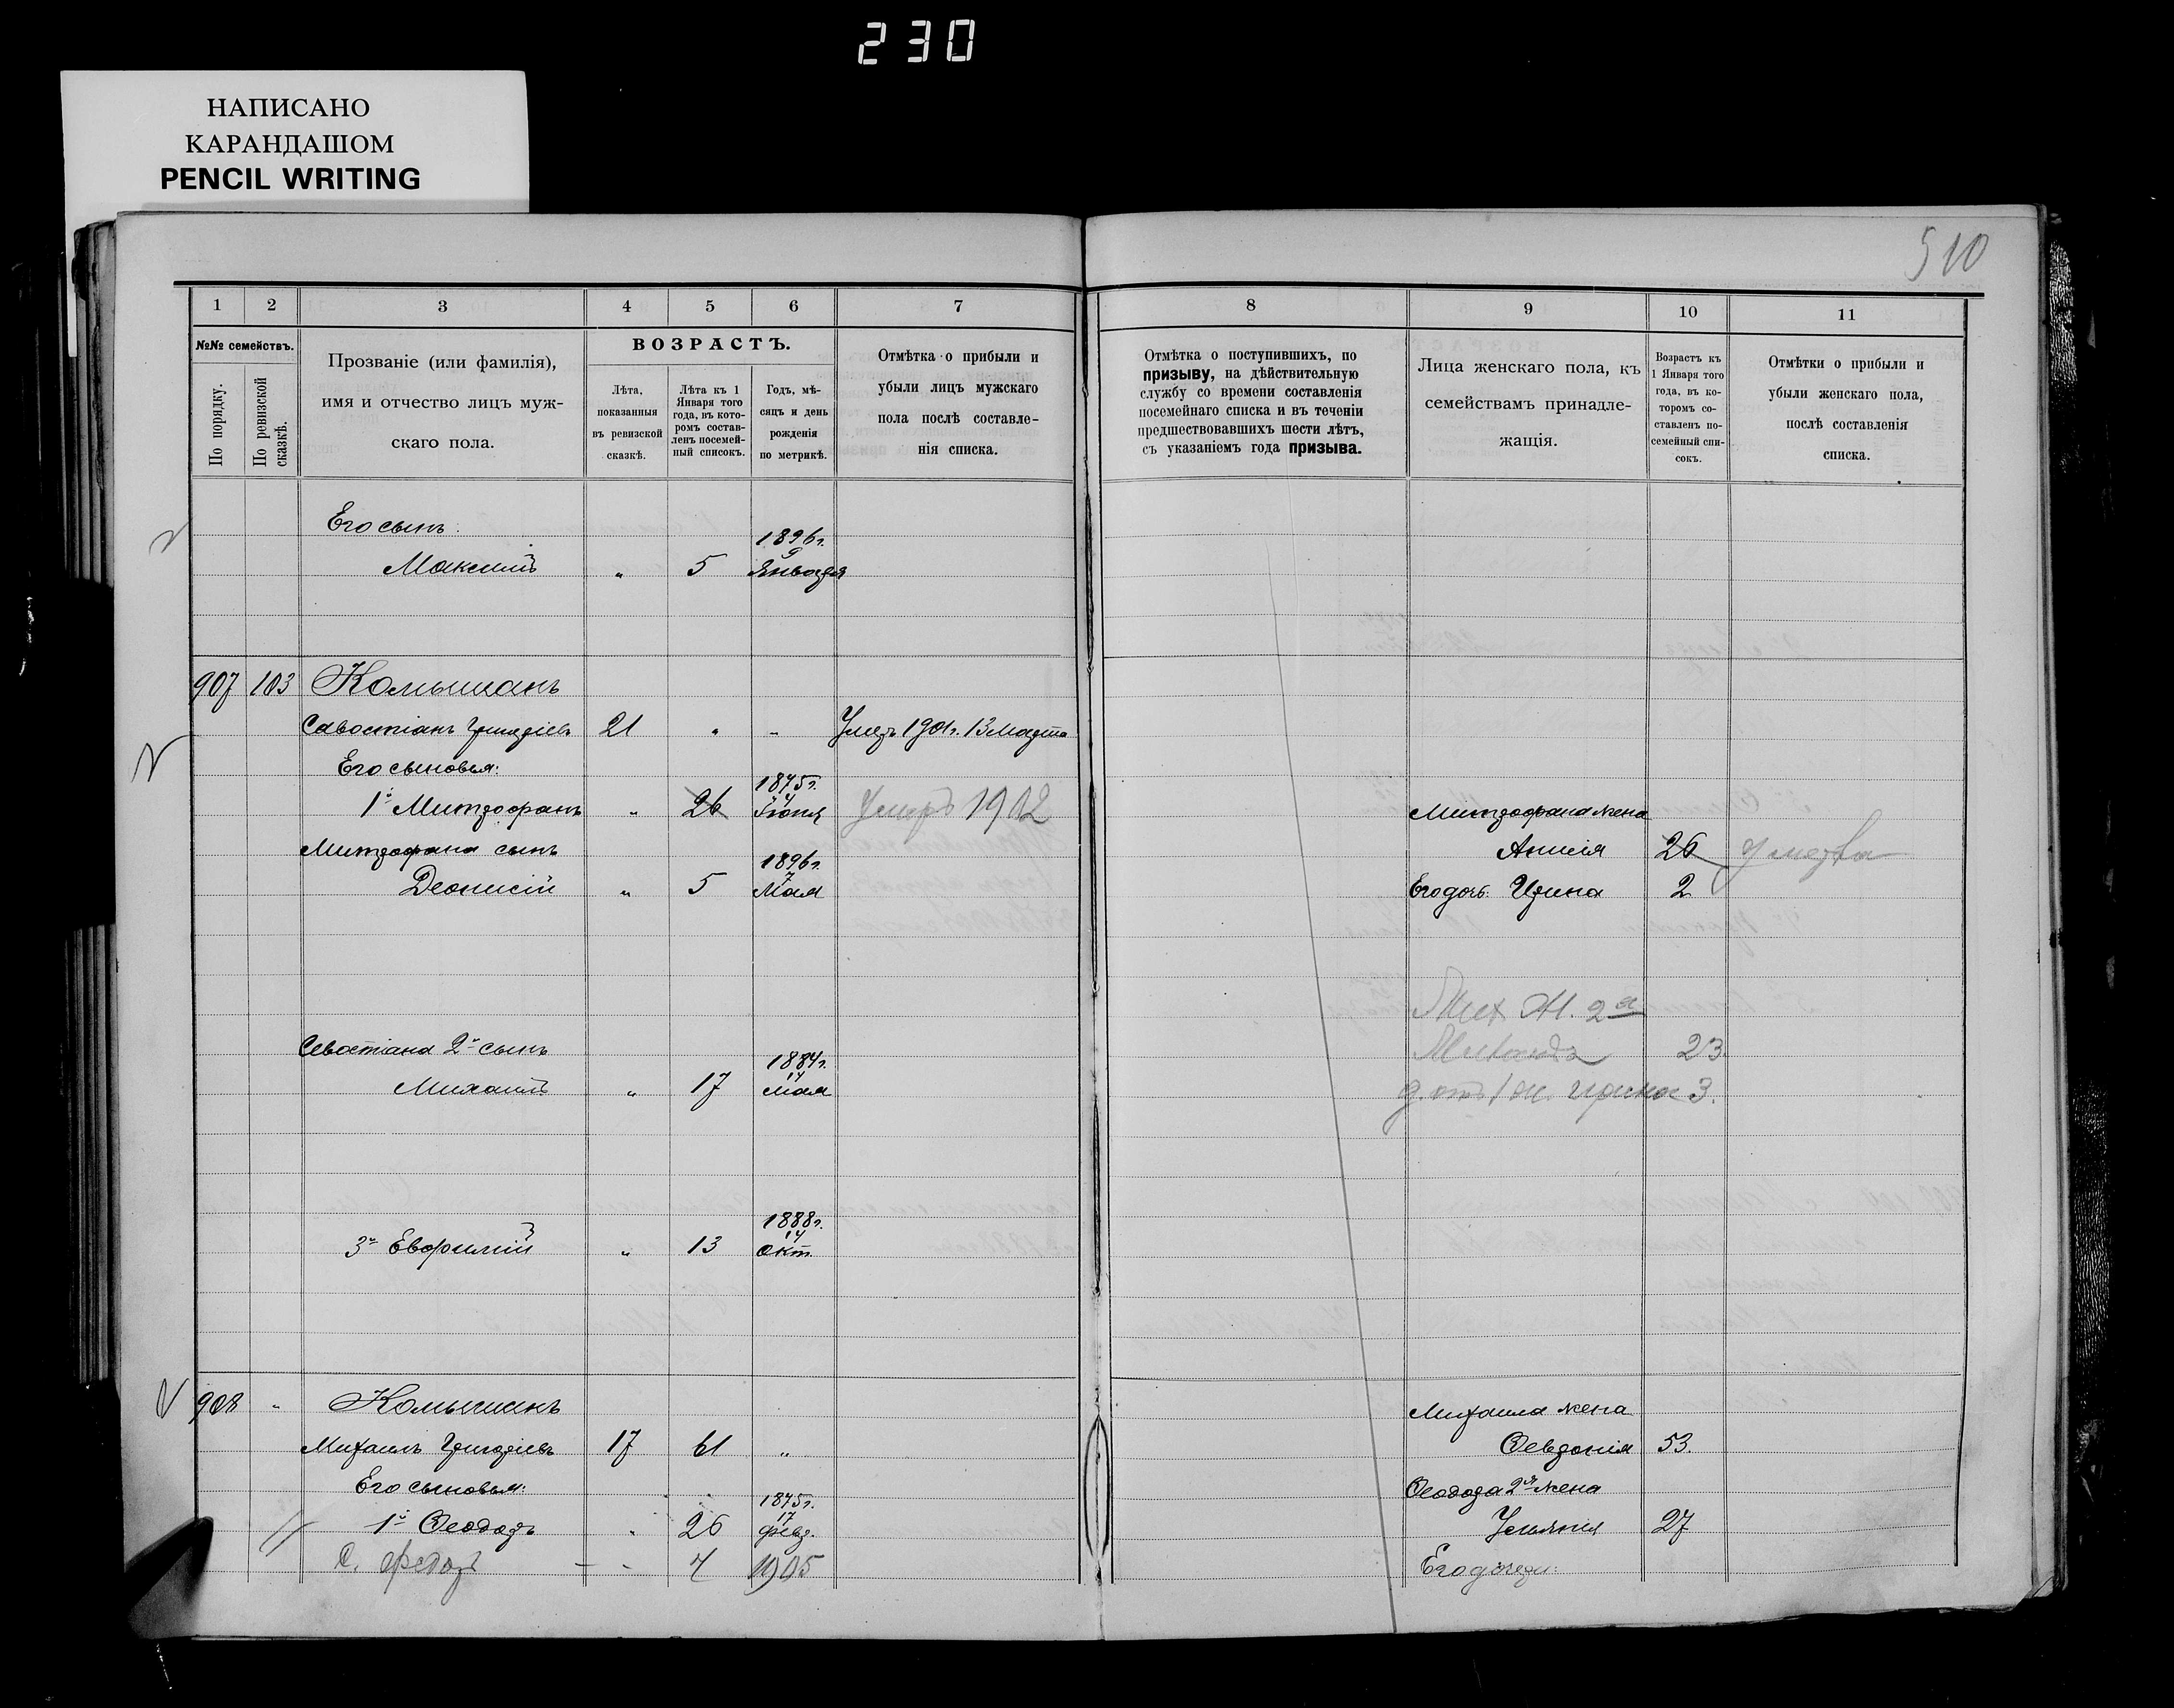 230
НАПИСАНО
КАРАНДАШОМ
PENCIL WRITING
510
1 2 3 4 5 6 7
№№ семействъ.
По порядку.
По ревизской сказкѣ.
Прозваніе (или фамилія),
имя и отчество лицъ муж-
скаго пола.
ВОЗРАСТЪ.
Лѣта,
показанныя
въ ревизской
сказкѣ.
Лѣта къ 1
Января того
года, въ кото-
ромъ состав-
ленъ посемей-
ный списокъ.
Годъ, мѣ-
сяцъ и день
рожденія
по метрикѣ.
Отмѣтка о прибыли и
убыли лицъ мужскаго
пола послѣ составле-
нія списка.
Его сынъ:
1896г.
Максимъ " 5 9 Января
907 103 Комышанъ
Савостіанъ Григоріевъ 21 " - Умеръ 1901г. 13 Марта
Его сыновья:
1875г.
1й Митрофанъ " 26 4 Іюня Умеръ 1902
Митрофана сынъ
1896г.
Деонисій " 5 7 Мая
Севостіана 2й сынъ
1884г.
Михаилъ " 17 14 Мая
1888г.
3й Евфимій " 13 14 Окт.
908 " Комышанъ
Михаилъ Григоріевъ 17 61 "
Его сыновья:
1875г.
1й Ѳеодоръ " 26 17 Февр.
С. Федоръ - - 4 1905
8 9 10 11
Отмѣтка о поступившихъ, по
призыву, на дѣйствительную
службу со времени составленія
посемейнаго списка и въ теченіи
предшествовавшихъ шести лѣтъ,
съ указаніемъ года призыва.
Лица женскаго пола, къ
семействамъ принадле-
жащія.
Возрастъ къ
1 Января того
года, въ ко-
торомъ со-
ставленъ по-
семейный спи-
сокъ.
Отмѣтки о прибыли и
убыли женскаго пола,
послѣ составленія
списка.
Митрофана жена
Анисія 26 Умерла
Его дочь: Ирина 2
Мих Ж. 2я
23.
д. отъ 1 ж. Ирина 3.
Михаила жена
Ѳевронія 53.
Ѳеодора 2я жена
Ульянія 27
Его дочери: